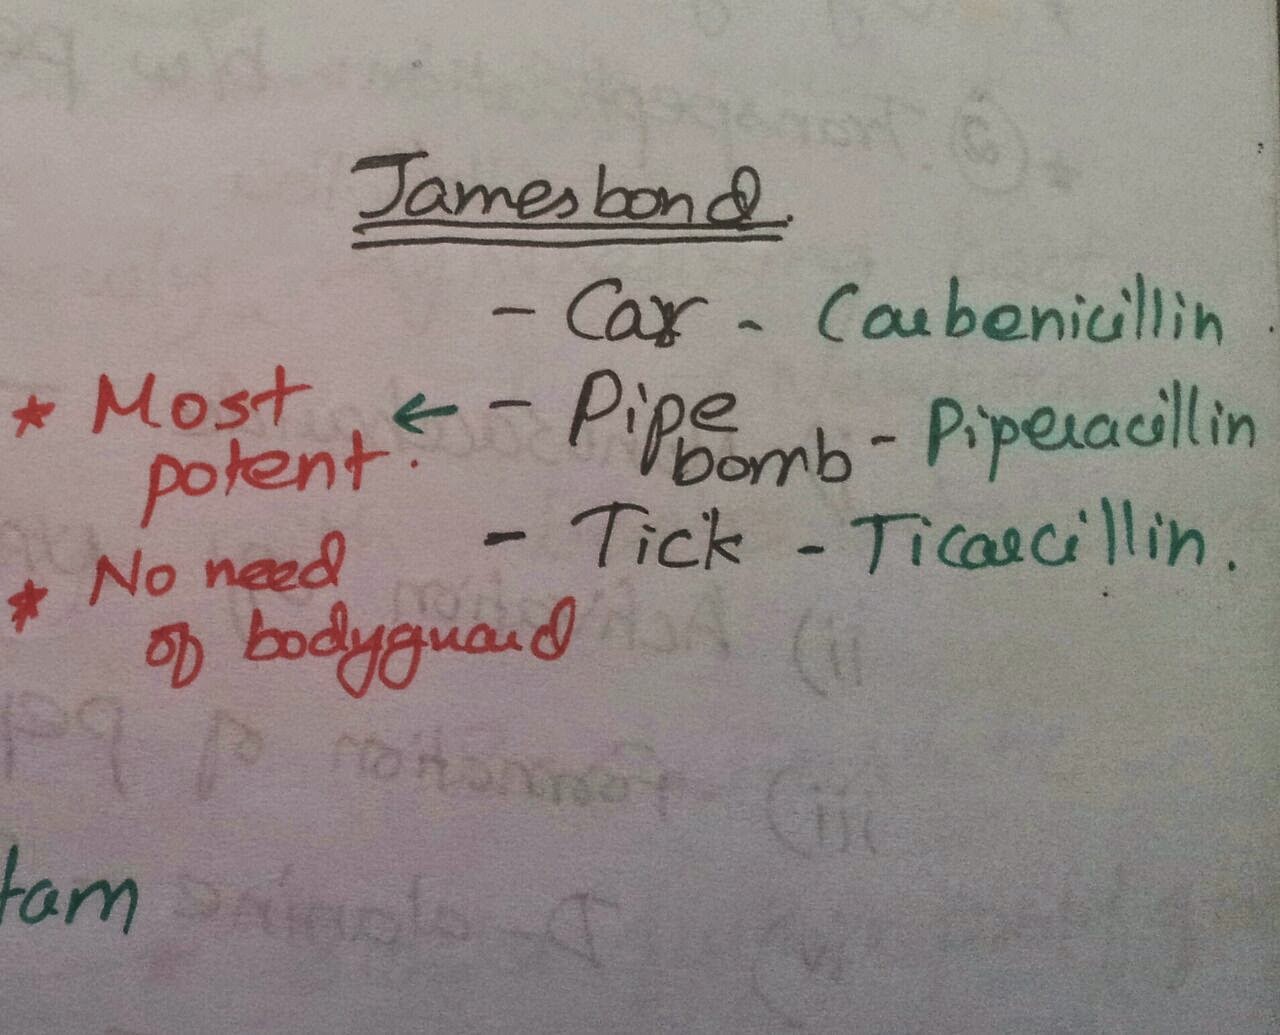 Jamesbond.
- Car - Carbenicillin
* Most potent. ← - Pipe bomb - Piperacillin
- Tick - Ticarcillin.
* No need
of bodyguard
tam